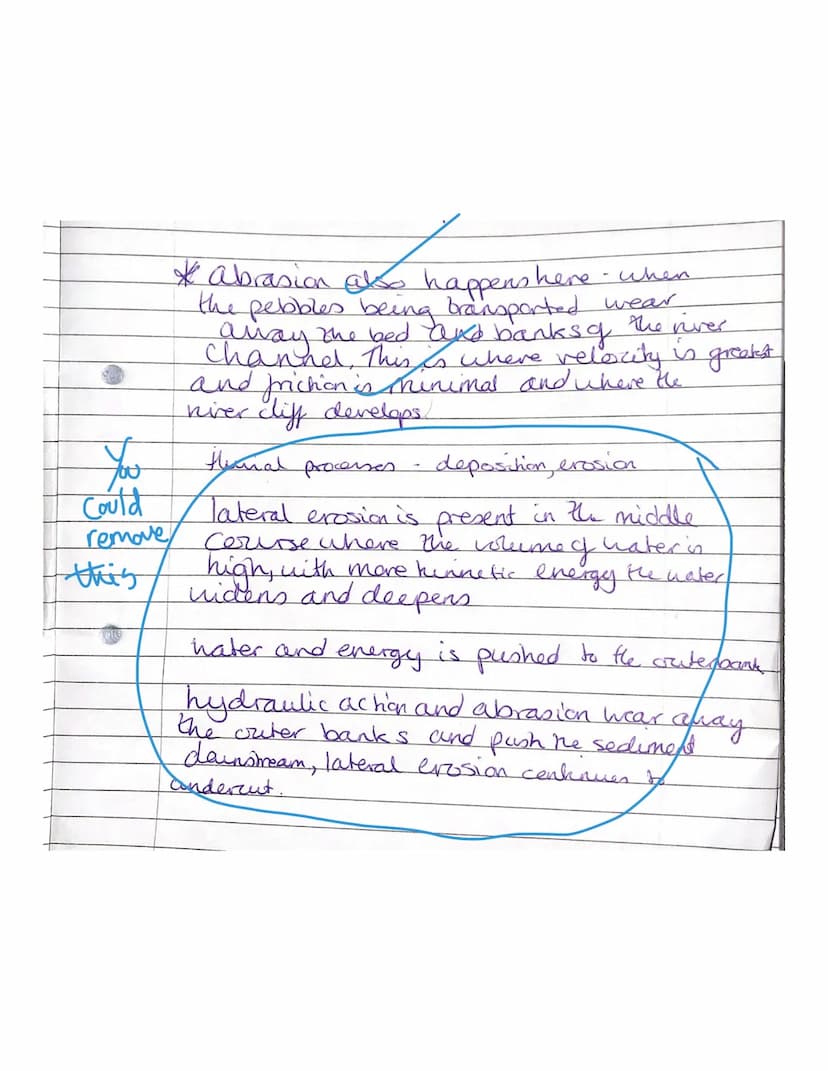 * abrasion also happens here - when
the pebbles being transported wear
away the bed and banks of the river
channel. This is where velocity is greatest
and friction is minimal and where the
river cliff develops.
fluvial processes - deposition, erosion
You
could
remove
this
lateral erosion is present in the middle
course where the volume of water is
high, with more kinnetic energy the water
widens and deepens
water and energy is pushed to the outerbank
hydraulic action and abrasion wear away
the outer banks and push he sediment
downstream, lateral erosion continues to
undercut.